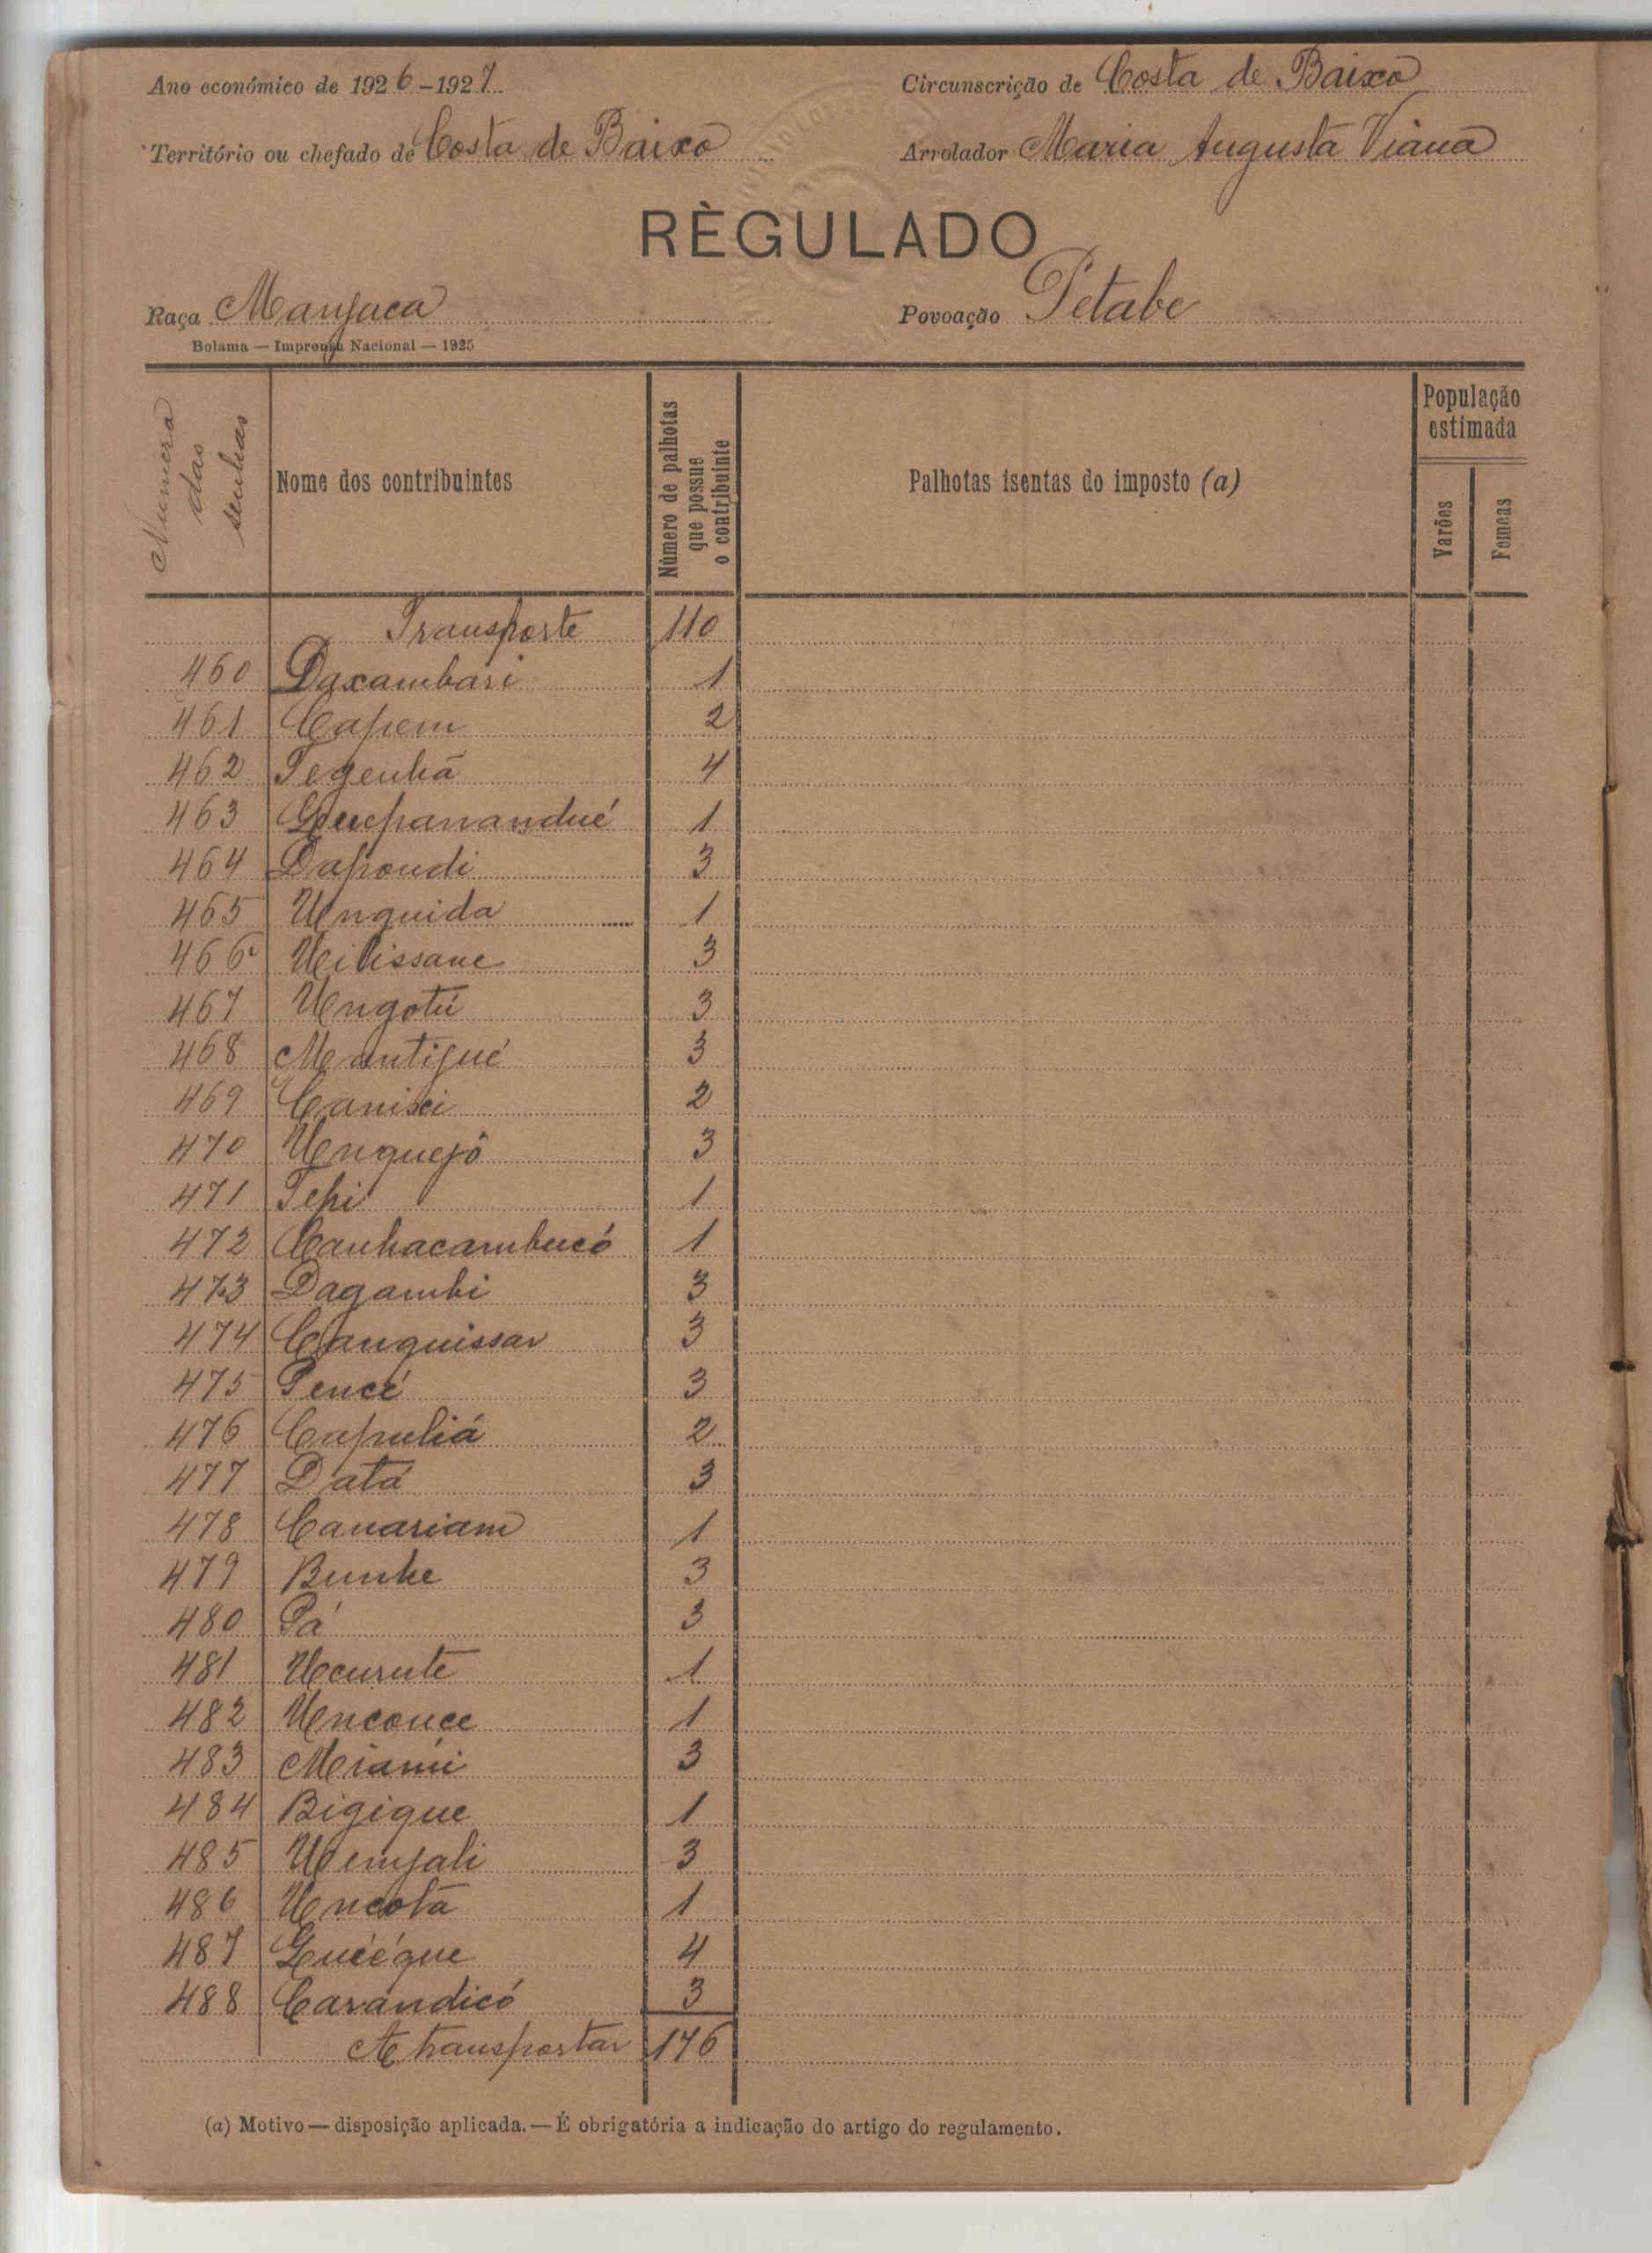 Ano económico de 1926-1927
Circunscrição de Costa de Baixo
Território ou chefado de Costa de Baixo
Arrolador Maria Augusta Viana
RÈGULADO
Raça Manjaca
Povoação Petabe
Bolama — Imprensa Nacional — 1925
Numero das senhas
Nome dos contribuintes
Número de palhotas que possue o contribuinte
Palhotas isentas do imposto (a)
População estimada
Varões
Femeas
Transporte 110
460 Daxambari 1
461 Capem 2
462 Tegenhã 4
463 1
464 Dapondi 3
465 Unguida 1
466 Uilissane 3
467 Ungotú 3
468 Mantijué 3
469 2
470 Unguejô 3
471 Tepi 1
472 Canhacambucó 1
473 Dagambi 3
474 Canguissar 3
475 Pencé 3
476 Capuliá 2
477 Datá 3
478 Canariam 1
479 Bunhe 3
480 Pá 3
481 Ucurute 1
482 Unconce 1
483 3
484 Bigique 1
485 Uemjali 3
486 Uncotã 1
487 Guiéque 4
488 Carandicó 3
A transportar 176
(a) Motivo — disposição aplicada. — É obrigatória a indicação do artigo do regulamento.